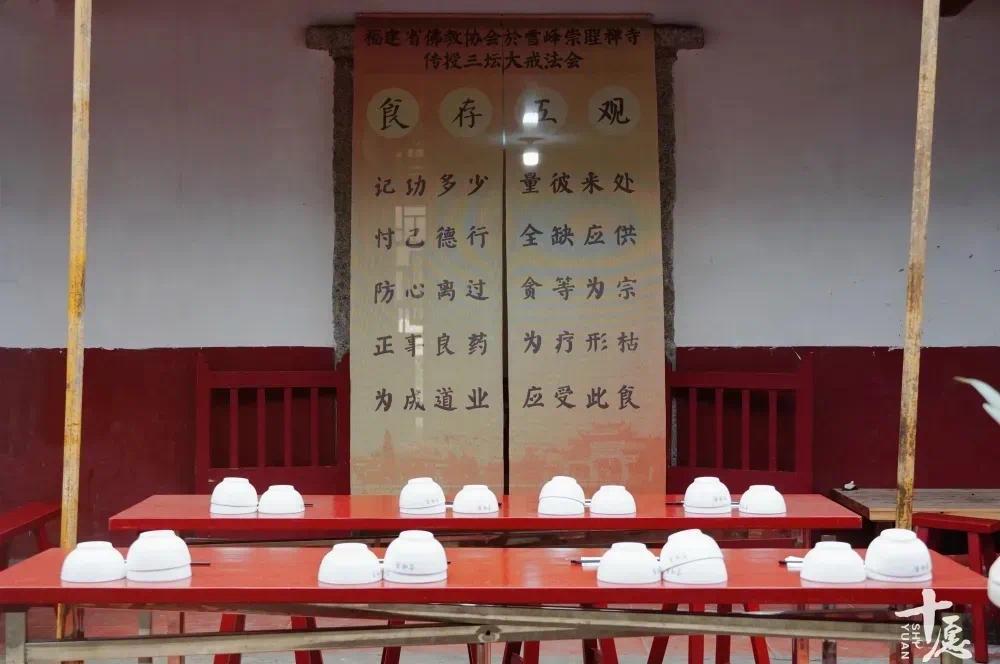 福建省佛教协会於雪峰崇聖禅寺
传授三坛大戒法会
食存五观
记功多少 量彼来处
忖己德行 全缺应供
防心离过 贪等为宗
正事良药 为疗形枯
为成道业 应受此食
十愿
SHI YUAN